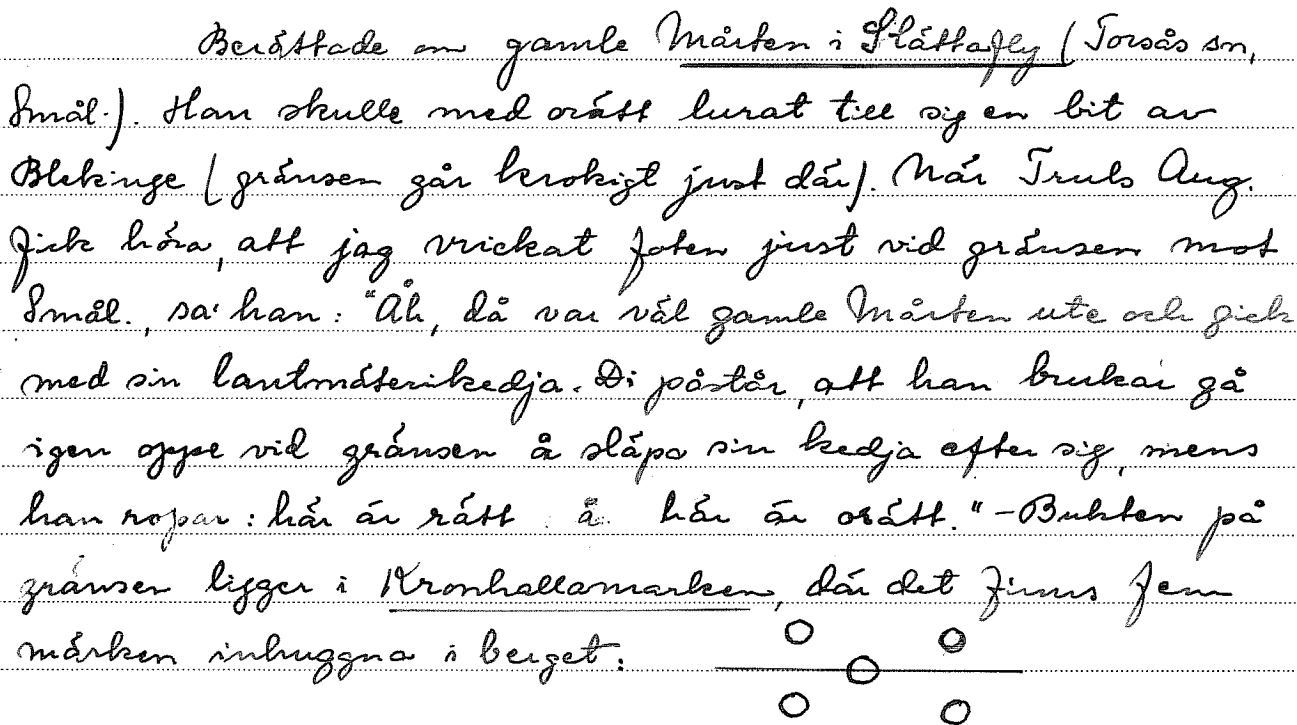 Berättade om gamle Mårten i Slättafly (Torsås sn,
Smål.). Han skulle med orätt lurat till sig en bit av
Blekinge (gränsen går krokigt just där). När Truls Aug.
fick höra, att jag vrickat foten just vid gränsen mot
Smål., sa' han: "Åh, då var väl gamle Mårten ute och gick
med sin lantmäterikedja. Di påstår, att han brukar gå
igen oppe vid gränsen å släpa sin kedja efter sig, mens
han ropar: här är rätt å här är orätt." - Bukten på
gränsen ligger i Kronhallamarken, där det finns fem
märken inhuggna i berget: